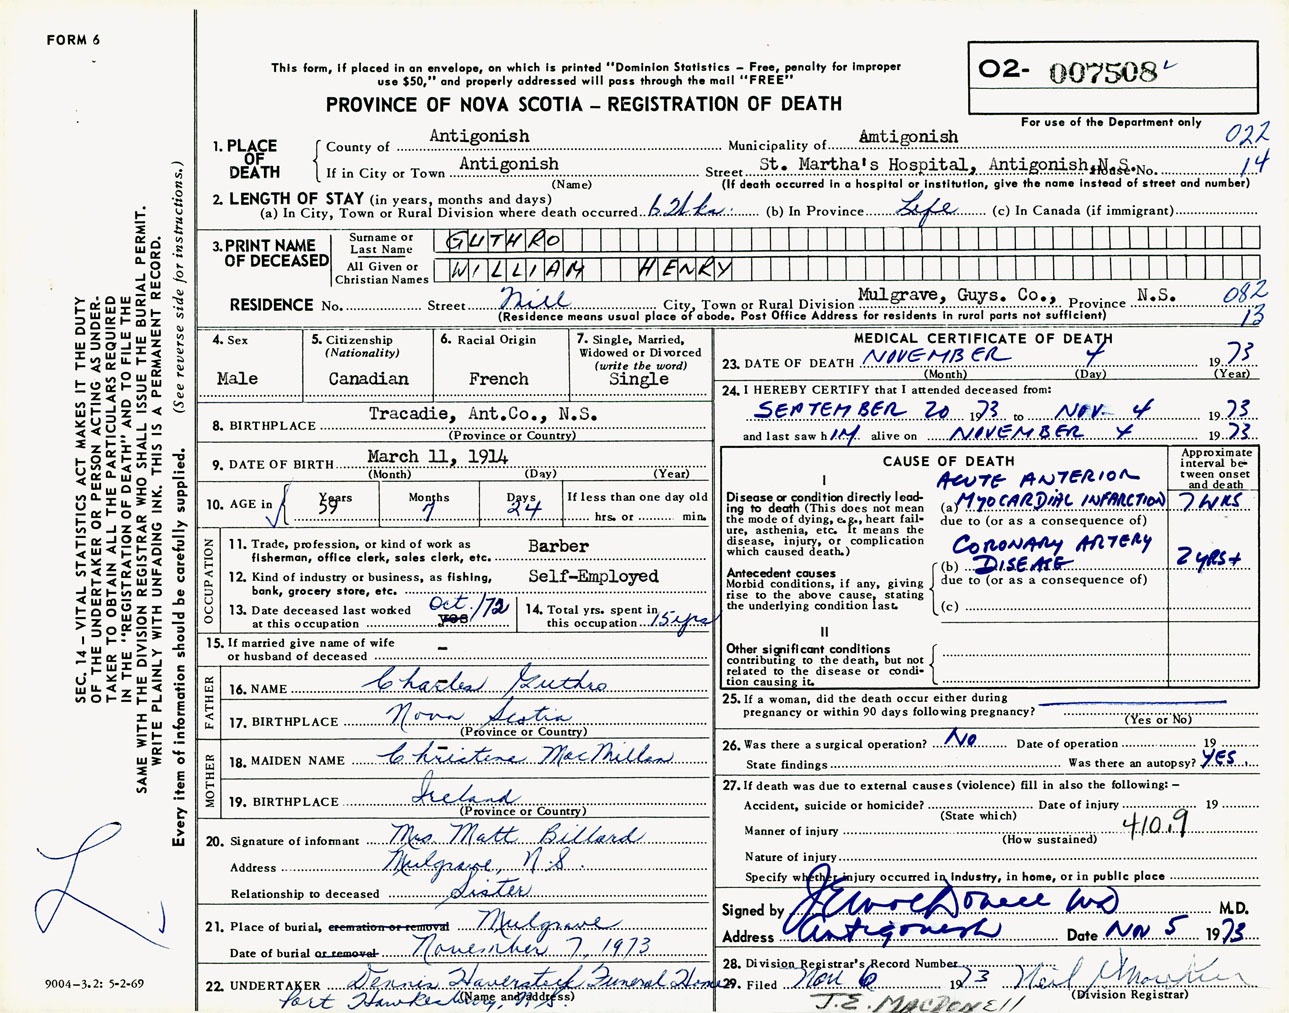 FORM 6
This form, if placed in an envelope, on which is printed "Dominion Statistics – Free, penalty for improper
use $50," and properly addressed will pass through the mail "FREE"
PROVINCE OF NOVA SCOTIA – REGISTRATION OF DEATH
02- 007508
For use of the Department only
022
14
1. PLACE OF DEATH
County of Antigonish Municipality of Amtigonish
If in City or Town Antigonish Street St. Martha's Hospital, Antigonish, N.S. House No.
(Name) (If death occurred in a hospital or institution, give the name instead of street and number)
2. LENGTH OF STAY (in years, months and days)
(a) In City, Town or Rural Division where death occurred (b) In Province Life (c) In Canada (if immigrant)
3. PRINT NAME OF DECEASED
Surname or Last Name GUTHRO
All Given or Christian Names WILLIAM HENRY
RESIDENCE No. Street Mill City, Town or Rural Division Mulgrave, Guys. Co., Province N.S. 082
(Residence means usual place of abode. Post Office Address for residents in rural parts not sufficient) 13
4. Sex
Male
5. Citizenship
(Nationality)
Canadian
6. Racial Origin
French
7. Single, Married,
Widowed or Divorced
(write the word)
Single
8. BIRTHPLACE Tracadie, Ant.Co., N.S.
(Province or Country)
9. DATE OF BIRTH March 11, 1914
(Month) (Day) (Year)
10. AGE in Years 59 Months 7 Days 24 If less than one day old
hrs. or min.
OCCUPATION
11. Trade, profession, or kind of work as
fisherman, office clerk, sales clerk, etc. Barber
12. Kind of industry or business, as fishing,
bank, grocery store, etc. Self-Employed
13. Date deceased last worked
at this occupation Oct./72 yes
14. Total yrs. spent in
this occupation 15 yrs
15. If married give name of wife
or husband of deceased -
FATHER
16. NAME Charles Guthro
17. BIRTHPLACE Nova Scotia
(Province or Country)
MOTHER
18. MAIDEN NAME Christene MacMillan
19. BIRTHPLACE Ireland
(Province or Country)
20. Signature of informant Mrs Matt Billard
Address Mulgrave, N.S.
Relationship to deceased Sister
21. Place of burial, cremation or removal Mulgrave
Date of burial or removal November 7, 1973
22. UNDERTAKER Dennis Haverstock Funeral Home
Port Hawkesbury, N.S.
(Name and address)
MEDICAL CERTIFICATE OF DEATH
23. DATE OF DEATH NOVEMBER 4 1973
(Month) (Day) (Year)
24. I HEREBY CERTIFY that I attended deceased from:
SEPTEMBER 20 1973 to NOV. 4 1973
and last saw hIM alive on NOVEMBER 4 1973
CAUSE OF DEATH
Approximate
interval be-
tween onset
and death
I
Disease or condition directly lead-
ing to death (This does not mean
the mode of dying, e.g., heart fail-
ure, asthenia, etc. It means the
disease, injury, or complication
which caused death.)
ACUTE ANTERIOR
(a) MYOCARDIAL INFARCTION 7 WKS
due to (or as a consequence of)
CORONARY ARTERY
(b) DISEASE 2 YRS+
due to (or as a consequence of)
(c)
Antecedent causes
Morbid conditions, if any, giving
rise to the above cause, stating
the underlying condition last.
II
Other significant conditions
contributing to the death, but not
related to the disease or condi-
tion causing it.
25. If a woman, did the death occur either during
pregnancy or within 90 days following pregnancy?
(Yes or No)
26. Was there a surgical operation? NO Date of operation 19
State findings Was there an autopsy? YES
27. If death was due to external causes (violence) fill in also the following: –
Accident, suicide or homicide? Date of injury 19
(State which)
Manner of injury 410.9
(How sustained)
Nature of injury
Specify whether injury occurred in industry, in home, or in public place
Signed by J E MacDonell MD M.D.
Address Antigonish Date NOV 5 1973
28. Division Registrar's Record Number
29. Filed Nov 6 1973 Neil
(Division Registrar)
J.E. MACDONELL
SEC. 14 – VITAL STATISTICS ACT MAKES IT THE DUTY
OF THE UNDERTAKER OR PERSON ACTING AS UNDER-
TAKER TO OBTAIN ALL THE PARTICULARS REQUIRED
IN THE "REGISTRATION OF DEATH" AND TO FILE THE
SAME WITH THE DIVISION REGISTRAR WHO SHALL ISSUE THE BURIAL PERMIT.
WRITE PLAINLY WITH UNFADING INK. THIS IS A PERMANENT RECORD.
Every item of information should be carefully supplied. (See reverse side for instructions.)
9004–3.2: 5-2-69